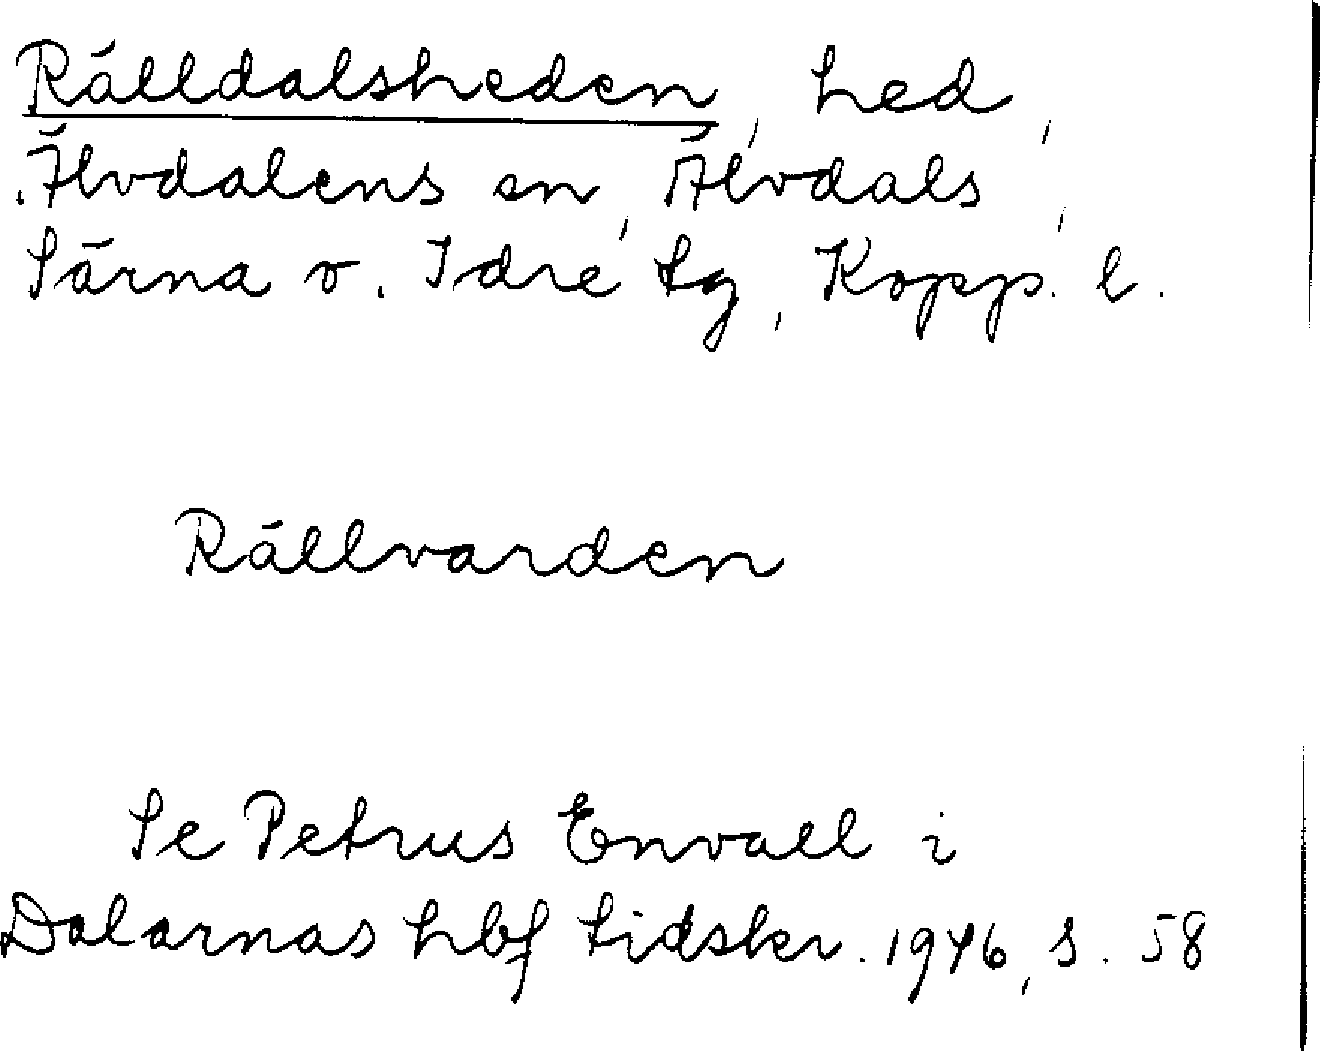 Rälldalsheden, hed,
Älvdalens sn, Älvdals,
Särna o. Idre tg, Kopp. l.
Rällvarden
Se Petrus Envall i
Dalarnas hbf tidskr. 1946, s. 58